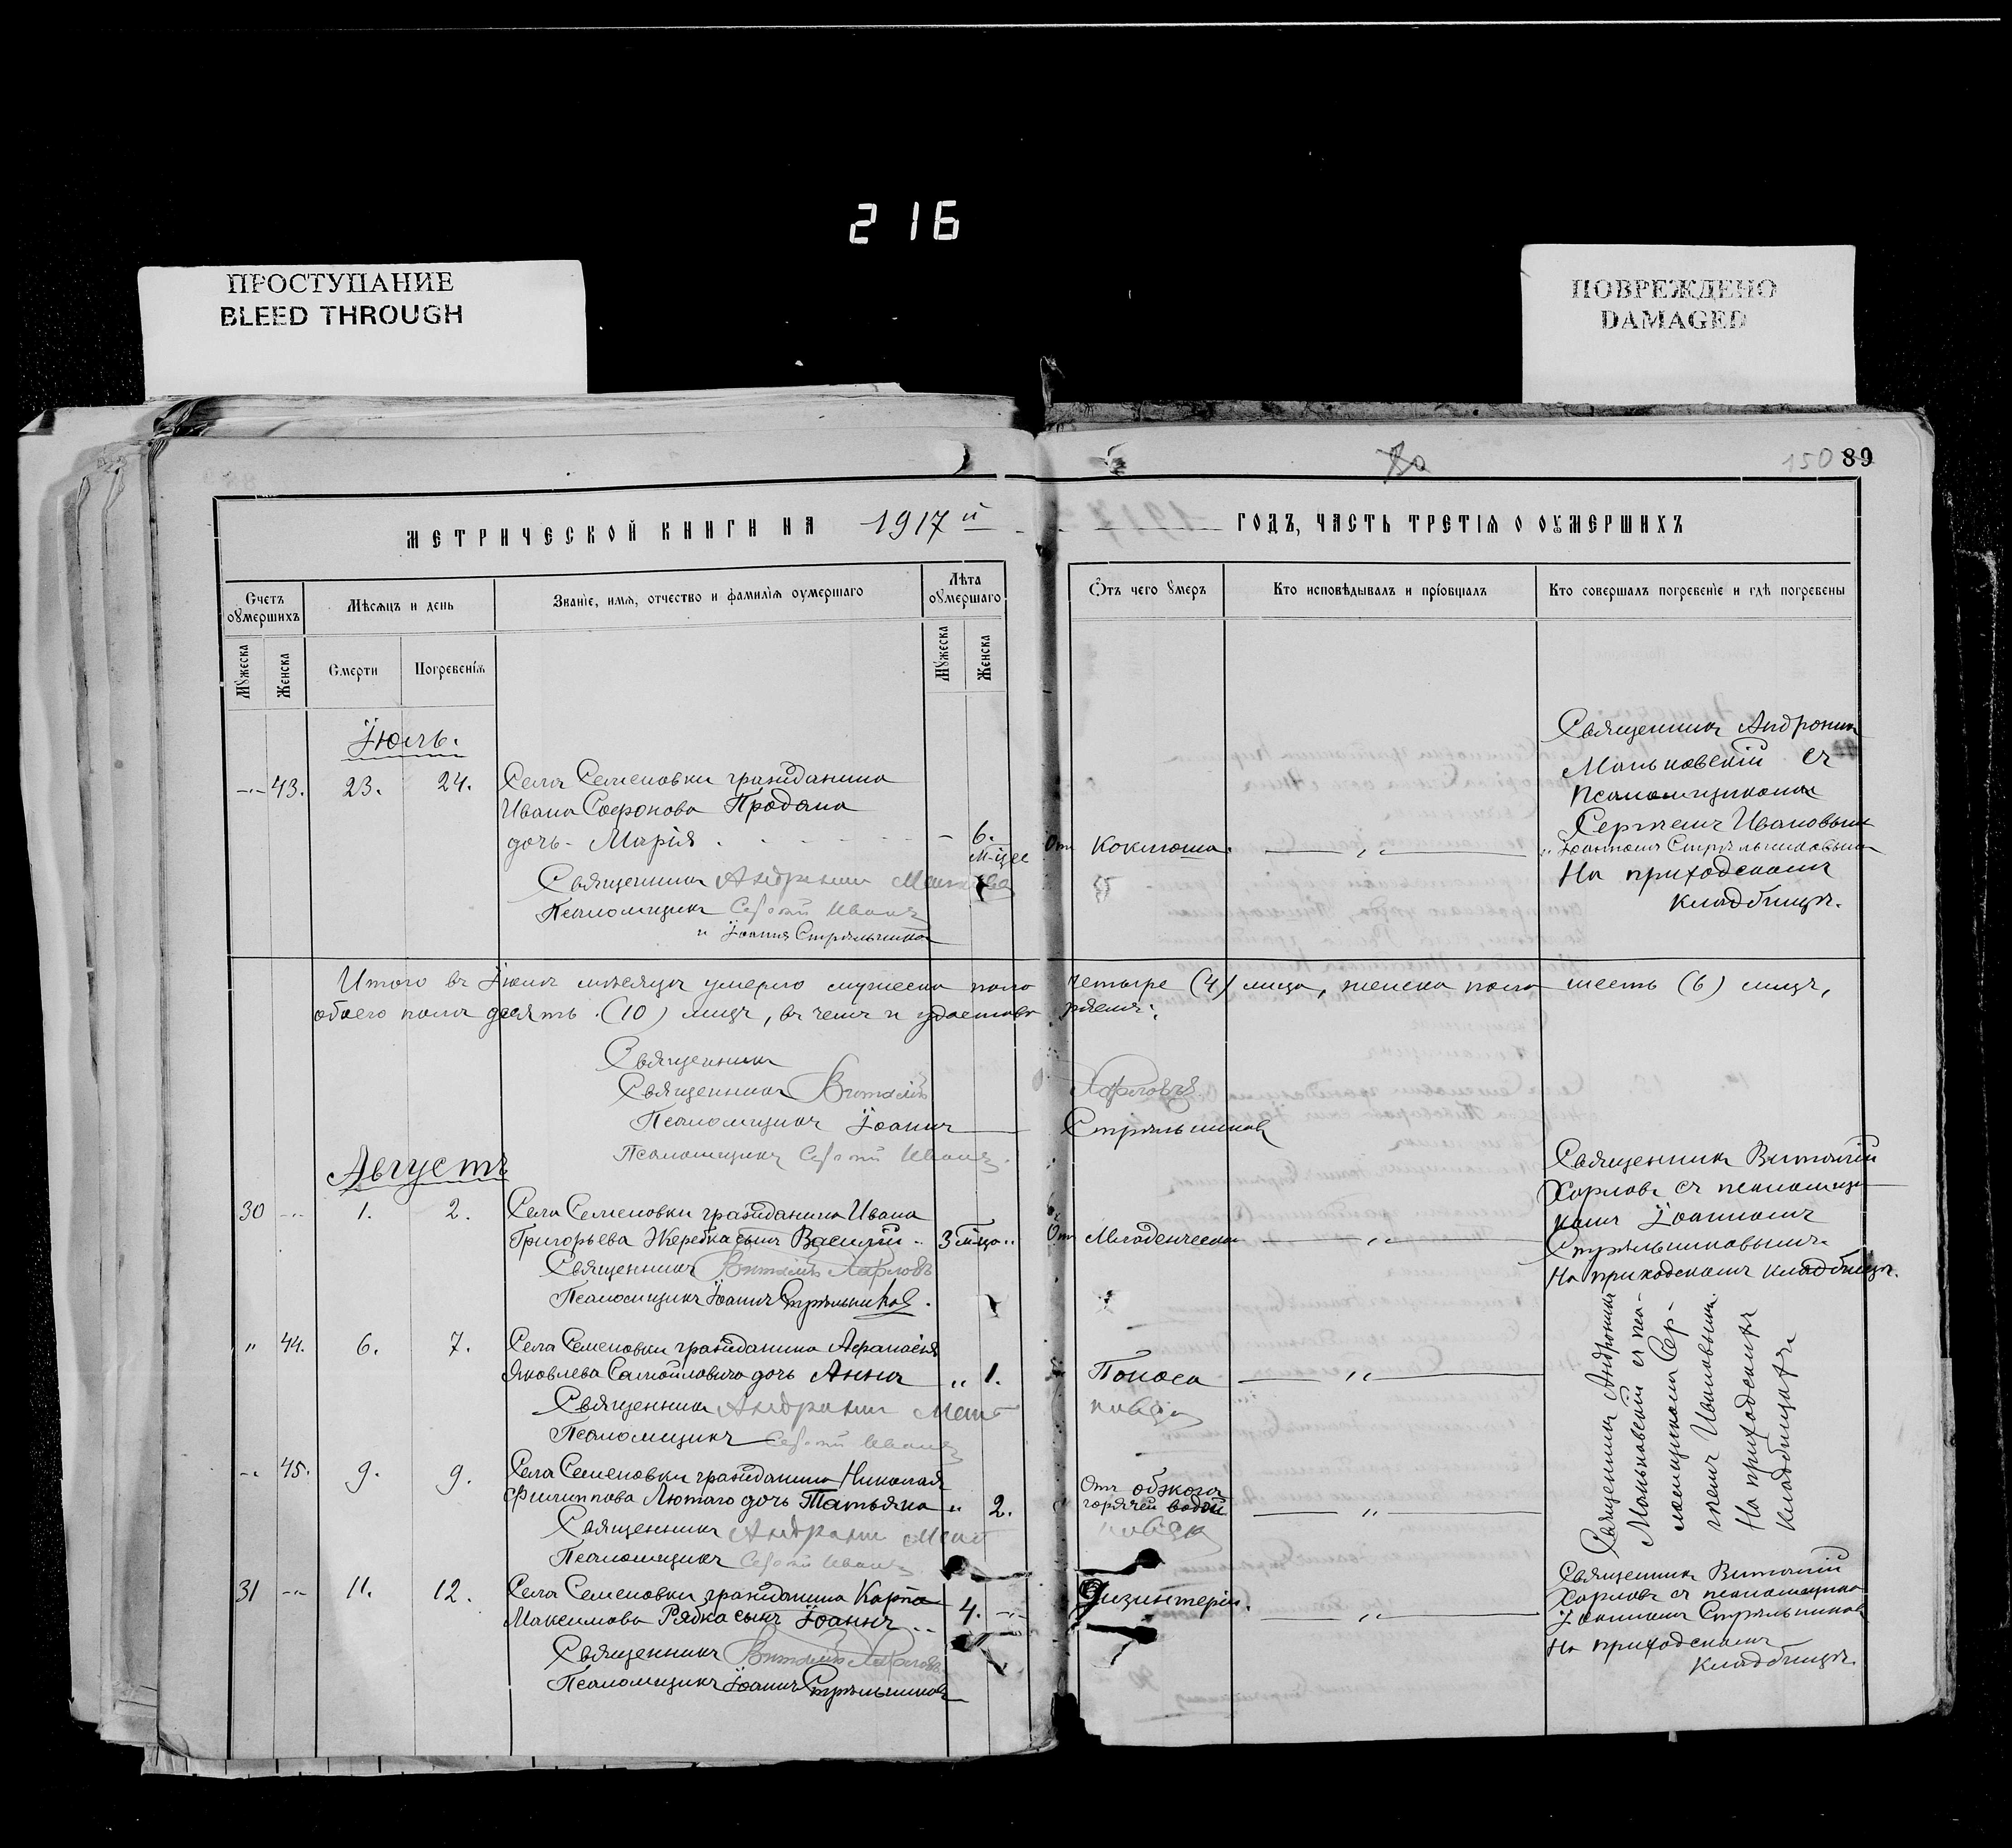 216
ПРОСТУПАНИЕ
BLEED THROUGH
ПОВРЕЖДЕНО
DAMAGED
150 89
МЕТРИЧЕСКОЙ КНИГИ НА 1917й
ГОДЪ, ЧАСТЬ ТРЕТІѦ О ОУМЕРШИХЪ
Счетъ оумершихъ
Мѣсяцъ и день
Званіе, имѧ, отчество и фамиліѧ оумершаго
Лѣта оумершаго
Отъ чего умеръ
Кто исповѣдывалъ и пріобщалъ
Кто совершалъ погребеніе и гдѣ погребены
Мужеска
Женска
Смерти
Погребеніѧ
Мужеска
Женска
Іюль.
43. 23. 24. Села Семеновки гражданина
Ивана Софронова Продана
дочь - Марія 6.
м-цев
Отъ Коклюша.
Священникъ Андроникъ
Маньковскій съ
псаломщикомъ
Сергіемъ Ивановымъ
и Іоанномъ Стрѣльниковымъ
На приходскомъ
кладбищѣ.
Священникъ Андроникъ
Псаломщикъ Сергій
и Іоаннъ Стрѣльниковъ
Итого въ Іюлѣ мѣсяцѣ умерло мужеска пола четыре (4) лица, женска пола шесть (6) лицъ,
обоего пола десять (10) лицъ, въ чемъ и удостовѣряемъ:
Священникъ
Священникъ Виталій Харловъ
Псаломщикъ Іоаннъ Стрѣльниковъ
Псаломщикъ Сергій
Августъ
30 1. 2. Села Семеновки гражданина Ивана
Григорьева Жеребка сынъ Василій 3 м-ца
Отъ Младенческой
Священникъ Виталій
Харловъ съ псаломщи-
комъ Іоанномъ
Стрѣльниковымъ
На приходскомъ кладбищѣ.
Священникъ Виталій Харловъ
Псаломщикъ Іоаннъ Стрѣльниковъ.
" 44. 6. 7. Села Семеновки гражданина Афанасія
Яковлева Самойловича дочь Анна " 1.
Поноса
Священникъ Андроникъ
Псаломщикъ Сергій
Священникъ Андроникъ
Маньковскій съ пса-
ломщикомъ Сер-
гіемъ Ивановымъ.
На приходскомъ
кладбищѣ
45. 9. 9. Села Семеновки гражданина Николая
Филиппова Лютаго дочь Татьяна " 2.
Отъ обжога
горячей водой
Священникъ Андроникъ
Псаломщикъ Сергій
31 11. 12. Села Семеновки гражданина Карпа
Максимова Рябка сынъ Іоаннъ 4.
Дизинтеріи.
Священникъ Виталій
Харловъ съ псаломщикомъ
Іоанномъ Стрѣльниковымъ
На приходскомъ
кладбищѣ.
Священникъ Виталій Харловъ
Псаломщикъ Іоаннъ Стрѣльниковъ